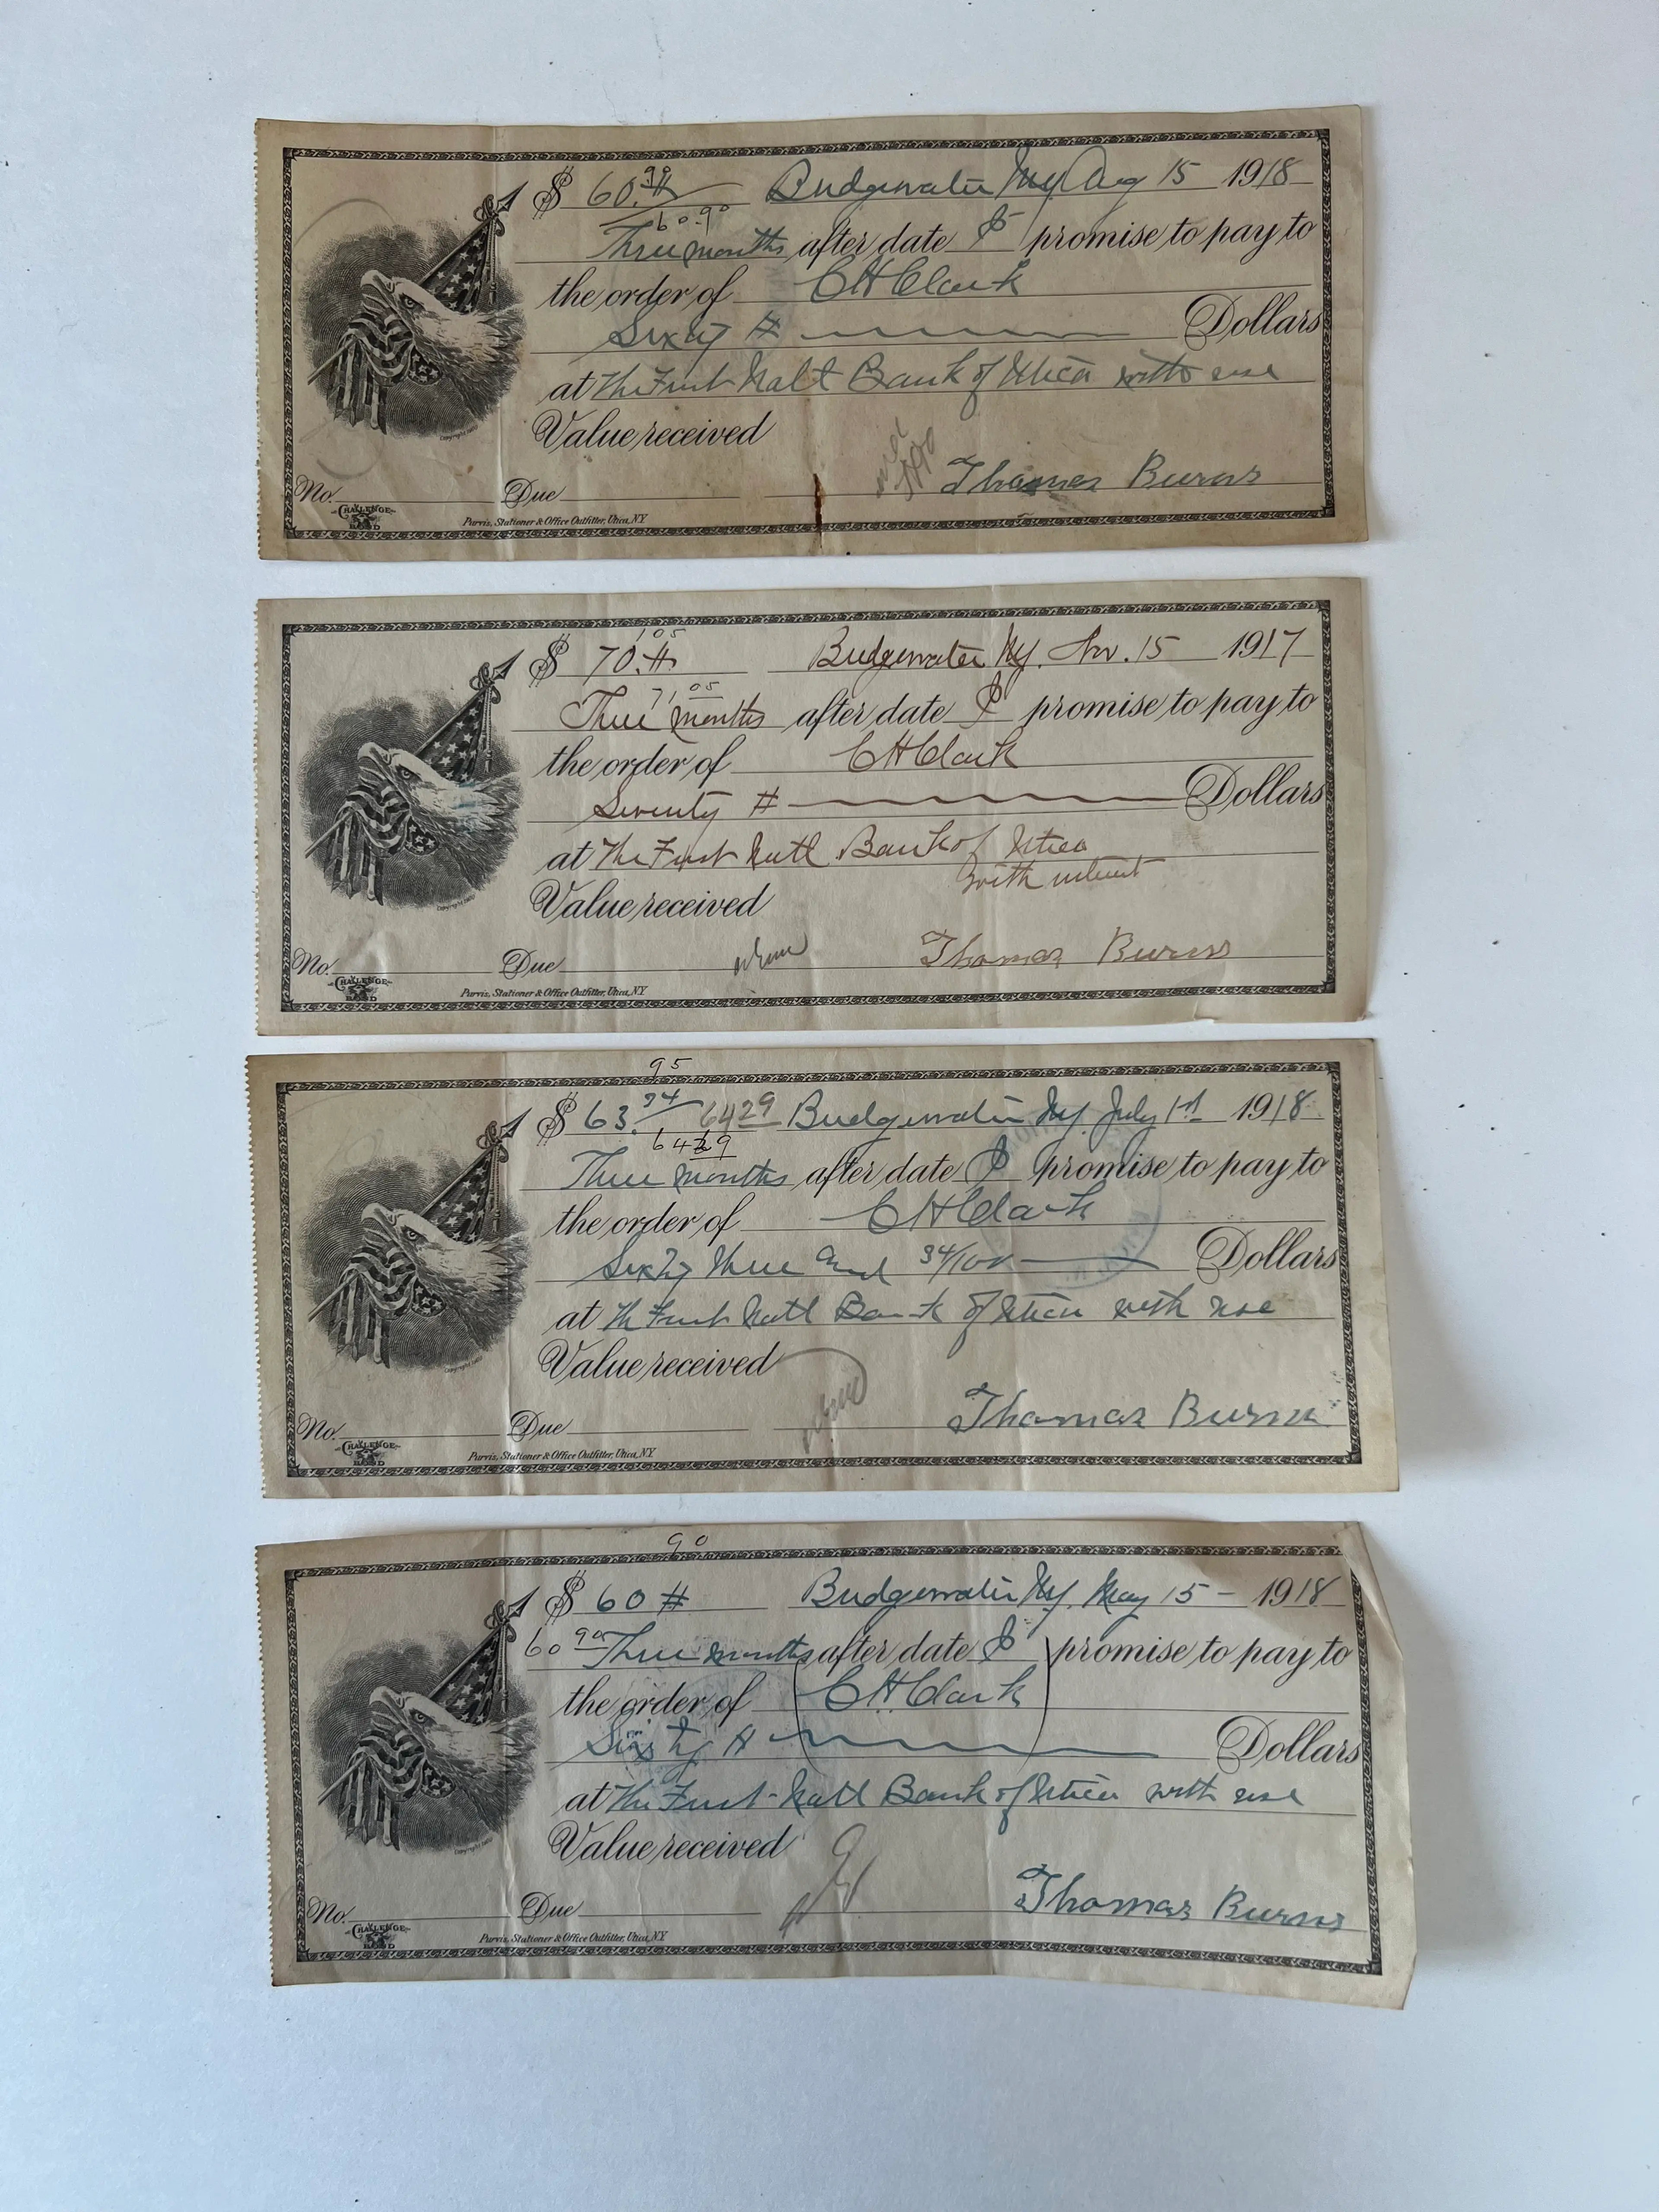 90
$ 60.# Bridgewater Ny. Aug 15 1918
60.90
Three months after date I promise to pay to
the order of C H Clark
Sixty # Dollars
at The First Natl Bank of Utica with use
Value received
Thomas Burns
No. Due
CHALLENGE
BOND
Purvis, Stationer & Office Outfitter, Utica, N.Y.
1 05
$ 70.# Bridgewater Ny. Nov. 15 1917
71.05
Three months after date I promise to pay to
the order of C H Clark
Seventy # Dollars
at The First Natl Bank of Utica
with interest
Value received
Thomas Burns
No. Due
CHALLENGE
BOND
Purvis, Stationer & Office Outfitter, Utica, N.Y.
95
$ 63.34 64 29 Bridgewater Ny. July 1st 1918
64 29
Three months after date I promise to pay to
the order of C H Clark
Sixty three and 34/100 Dollars
at The First Natl Bank of Utica with use
Value received
Thomas Burns
No. Due
CHALLENGE
BOND
Purvis, Stationer & Office Outfitter, Utica, N.Y.
90
$ 60 # Bridgewater Ny. May 15 - 1918
60 90 Three months after date I promise to pay to
the order of C H Clark
Sixty # Dollars
at The First Natl Bank of Utica with use
Value received
Thomas Burns
No. Due
CHALLENGE
BOND
Purvis, Stationer & Office Outfitter, Utica, N.Y.